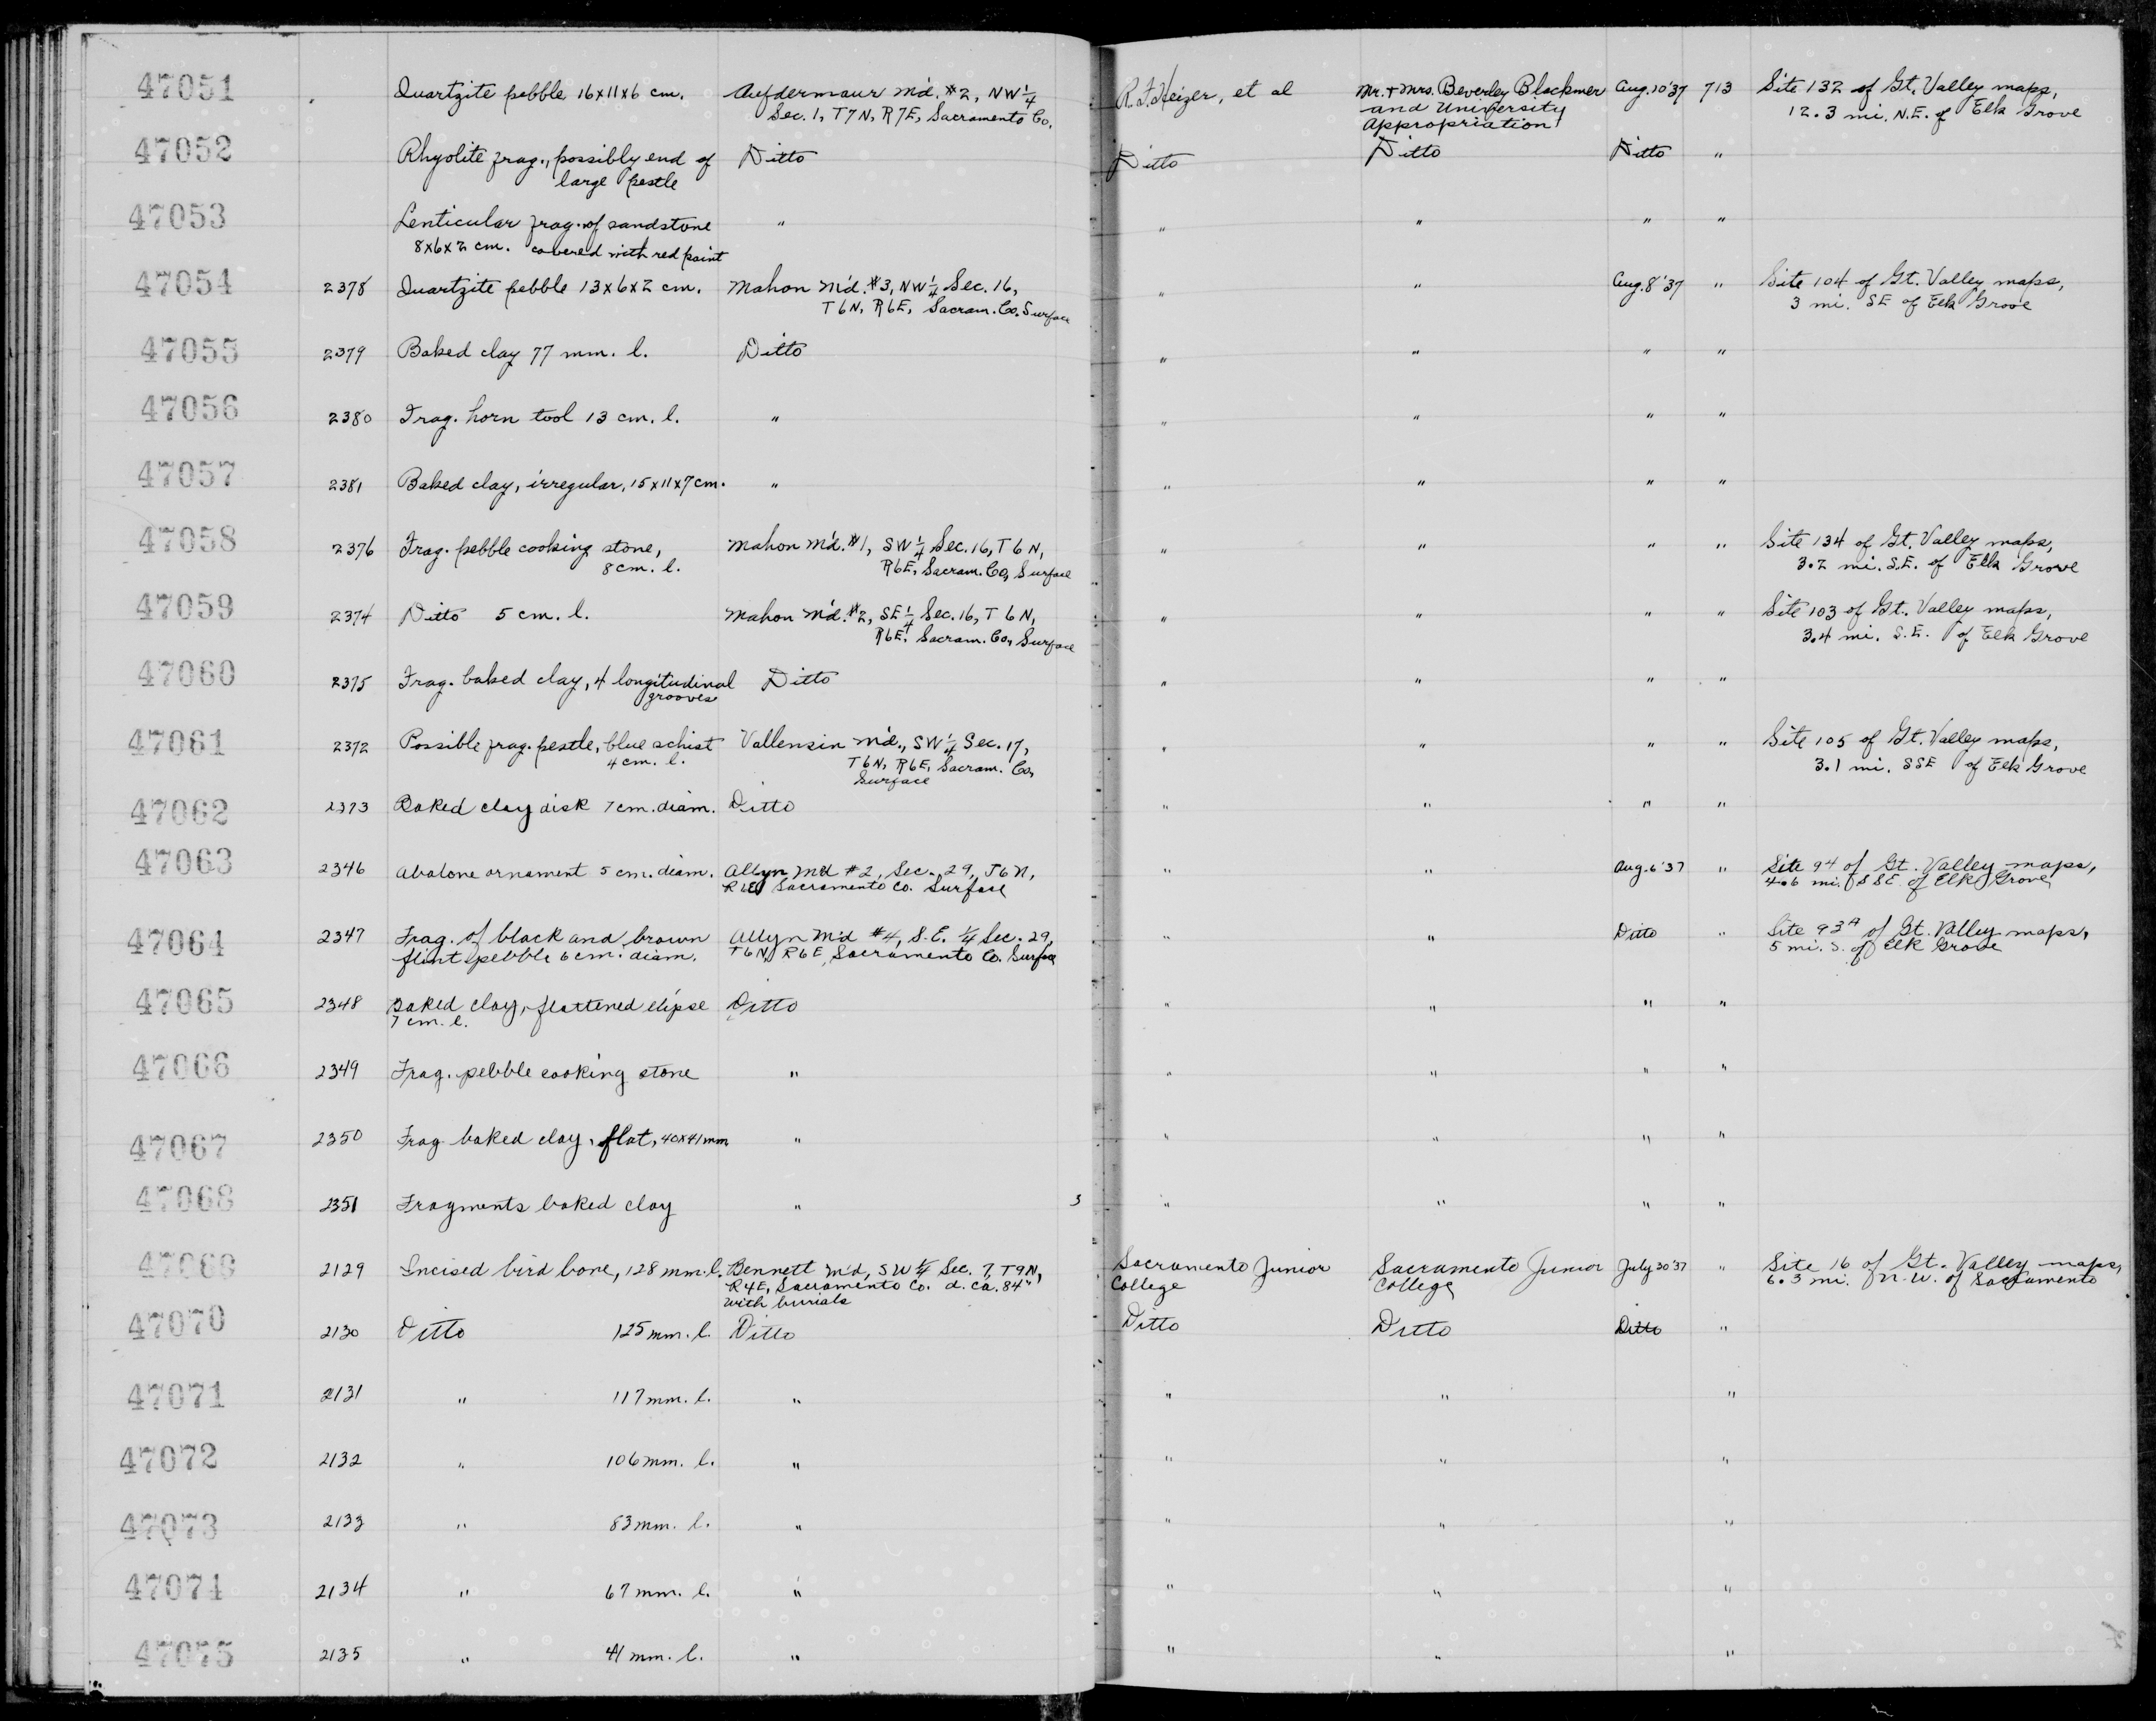 47051 Quartzite pebble 16x11x6 cm. Aufdermaur M'd. #2, NW 1/4 R.F. Heizer, et al Mr. + Mrs. Beverley Blackmer Aug. 10 '37 713 Site 132 of Gt. Valley maps,
Sec. 1, T7N, R7E, Sacramento Co. and University 12.3 mi. N.E. of Elk Grove
Appropriation
47052 Rhyolite frag., possibly end of Ditto Ditto Ditto Ditto "
large pestle
47053 Lenticular frag. of sandstone " " " " "
8x6x2 cm. covered with red paint
47054 2378 Quartzite pebble 13x6x2 cm. Mahon M'd. #3, NW 1/4 Sec. 16, " " Aug. 8 '37 " Site 104 of Gt. Valley maps,
T6N, R6E, Sacram. Co. Surface 3 mi. SE of Elk Grove
47055 2379 Baked clay 77 mm. l. Ditto " " " "
47056 2380 Frag. horn tool 13 cm. l. " " " " "
47057 2381 Baked clay, irregular, 15x11x7 cm. " " " " "
47058 2376 Frag. pebble cooking stone, Mahon M'd. #1, SW 1/4 Sec. 16, T6N, " " " " Site 134 of Gt. Valley maps,
8 cm. l. R6E, Sacram. Co, Surface 3.2 mi. S.E. of Elk Grove
47059 2374 Ditto 5 cm. l. Mahon M'd. #2, SE 1/4 Sec. 16, T6N, " " " " Site 103 of Gt. Valley maps,
R6E, Sacram. Co, Surface 3.4 mi. S.E. of Elk Grove
47060 2375 Frag. baked clay, 4 longitudinal Ditto " " " "
grooves
47061 2372 Possible frag. pestle, blue schist Vallensin M'd., SW 1/4 Sec. 17, " " " " Site 105 of Gt. Valley maps,
4 cm. l. T6N, R6E, Sacram. Co, 3.1 mi. SSE of Elk Grove
Surface
47062 2373 Baked clay disk 7 cm. diam. Ditto " " " "
47063 2346 Abalone ornament 5 cm. diam. Allyn M'd #2, Sec. 29, T6N, " " Aug. 6 '37 " Site 94 of Gt. Valley maps,
R6E Sacramento Co. Surface 4.6 mi. SSE of Elk Grove
47064 2347 Frag. of black and brown Allyn M'd #4, S.E. 1/4 Sec. 29, " " Ditto " Site 93A of Gt. Valley maps,
flint pebble 6 cm. diam. T6N, R6E, Sacramento Co. Surface 5 mi. S. of Elk Grove
47065 2348 Baked clay, flattened elipse Ditto " " " "
7 cm. l.
47066 2349 Frag. pebble cooking stone " " " " "
47067 2350 Frag baked clay, flat, 40x41mm " " " " "
47068 2351 Fragments baked clay " 3 " " " "
47069 2129 Incised bird bone, 128 mm. l. Bennett M'd, SW 1/4 Sec. 7, T9N, Sacramento Junior Sacramento Junior July 30 '37 " Site 16 of Gt. Valley maps,
R4E, Sacramento Co. d. ca. 84" College College 6.3 mi. N.W. of Sacramento
with burials
47070 2130 Ditto 125 mm. l. Ditto Ditto Ditto Ditto "
47071 2131 " 117 mm. l. " " " "
47072 2132 " 106 mm. l. " " " "
47073 2133 " 83 mm. l. " " " "
47074 2134 " 67 mm. l. " " " "
47075 2135 " 41 mm. l. " " " "